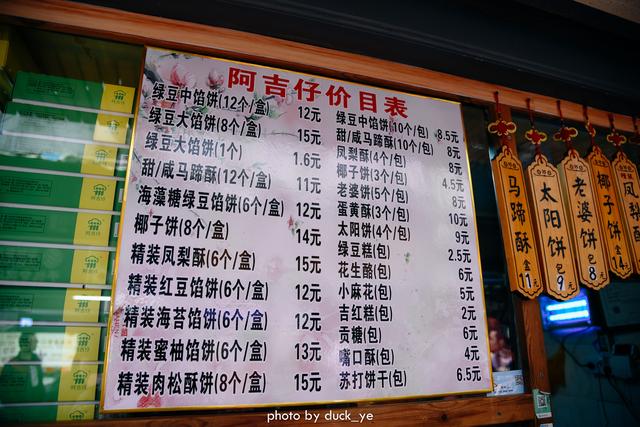 阿吉仔价目表
绿豆中馅饼(12个/盒) 12元
绿豆大馅饼(8个/盒) 15元
绿豆大馅饼(1个) 1.6元
甜/咸马蹄酥(12个/盒) 11元
海藻糖绿豆馅饼(6个/盒) 12元
椰子饼(8个/盒) 14元
精装凤梨酥(6个/盒) 15元
精装红豆馅饼(6个/盒) 12元
精装海苔馅饼(6个/盒) 12元
精装蜜柚馅饼(6个/盒) 13元
精装肉松酥饼(8个/盒) 15元
绿豆中馅饼(10个/包) 8.5元
甜/咸马蹄酥(10个/包) 8元
凤梨酥(4个/包) 8元
椰子饼(3个/包) 4.5元
老婆饼(5个/包) 8元
蛋黄酥(3个/包) 10元
太阳饼(4个/包) 9元
绿豆糕(包) 2.5元
花生酪(包) 6元
小麻花(包) 5元
吉红糕(包) 2元
贡糖(包) 6元
嘴口酥(包) 4元
苏打饼干(包) 6.5元
马蹄酥 盒 11元
太阳饼 包 9元
老婆饼 包 8元
椰子饼 盒 14元
photo by duck_ye